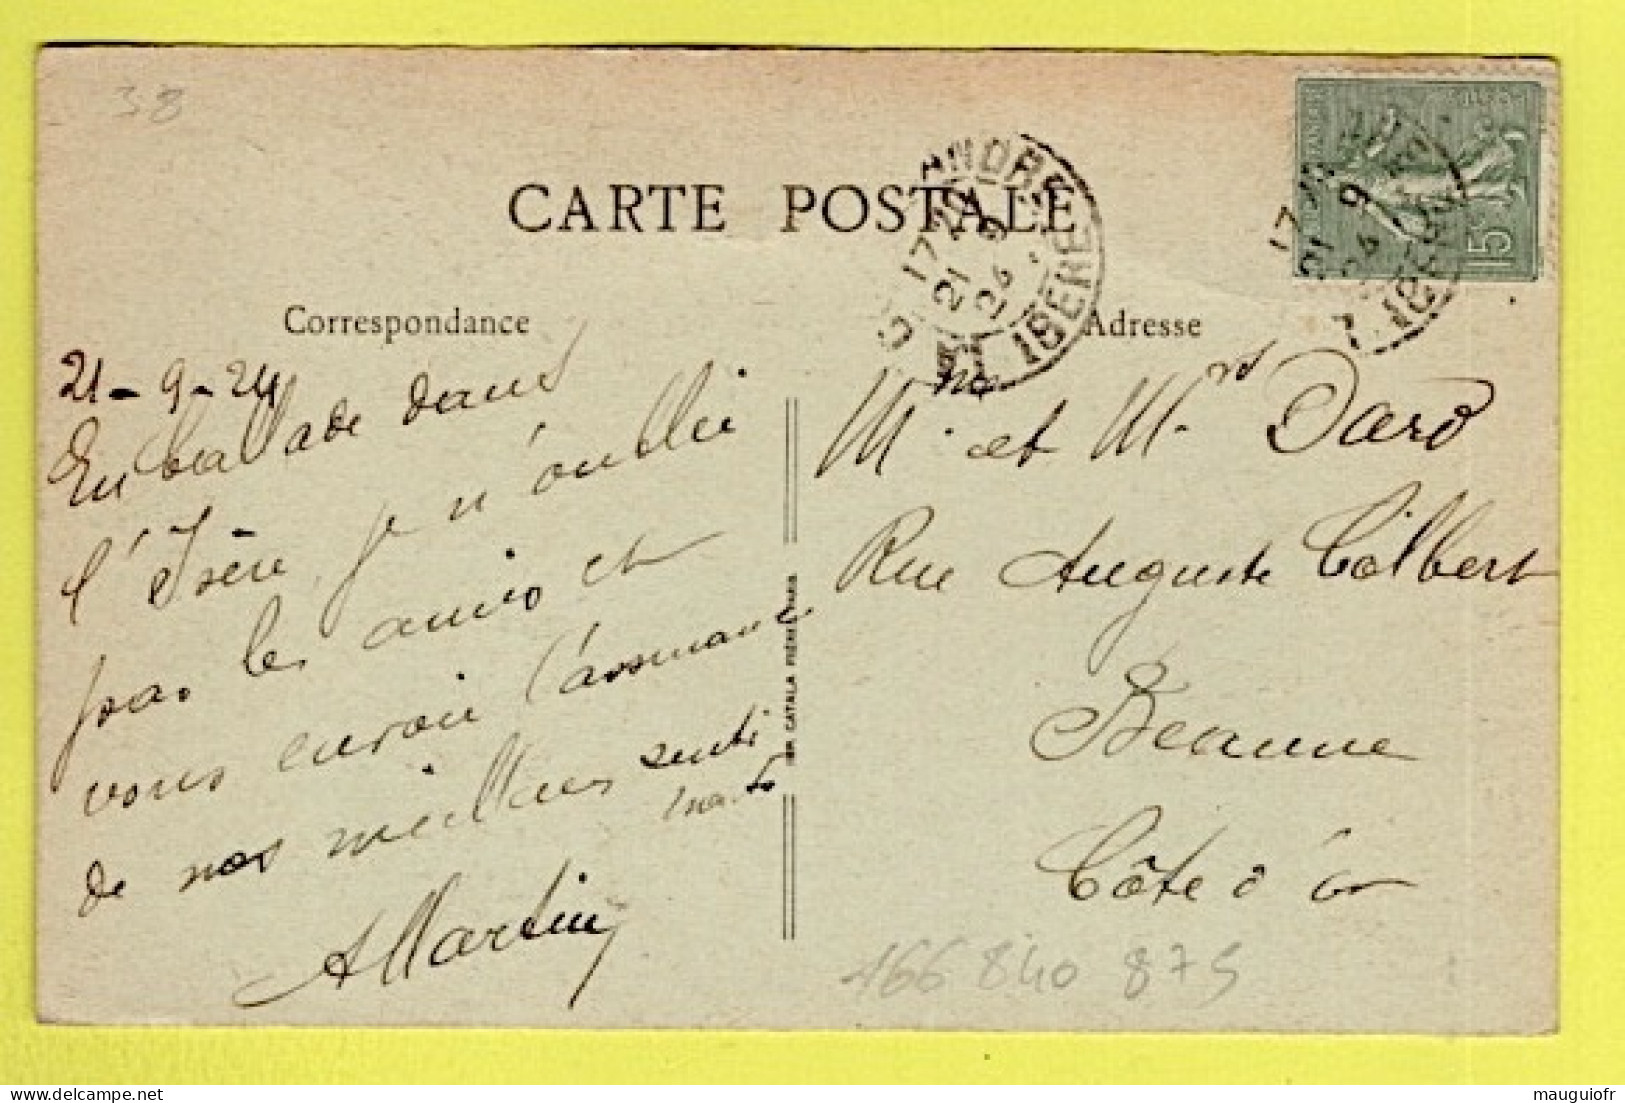 38
CARTE POSTALE
Correspondance
21-9-24
En ballade dans
l'Isère, je n'oublie
pas les amis et
vous envoie l'assurance
de nos meilleurs senti
ments
A Martin
IMP. CATALA FRÈRES PARIS
17 20
21 9
24
ISERE
Adresse
15
17
21 9
24
Mme et Mr Dard
Rue Auguste Colbert
Beaune
Côte d'or
466 840 875
mauguiofr